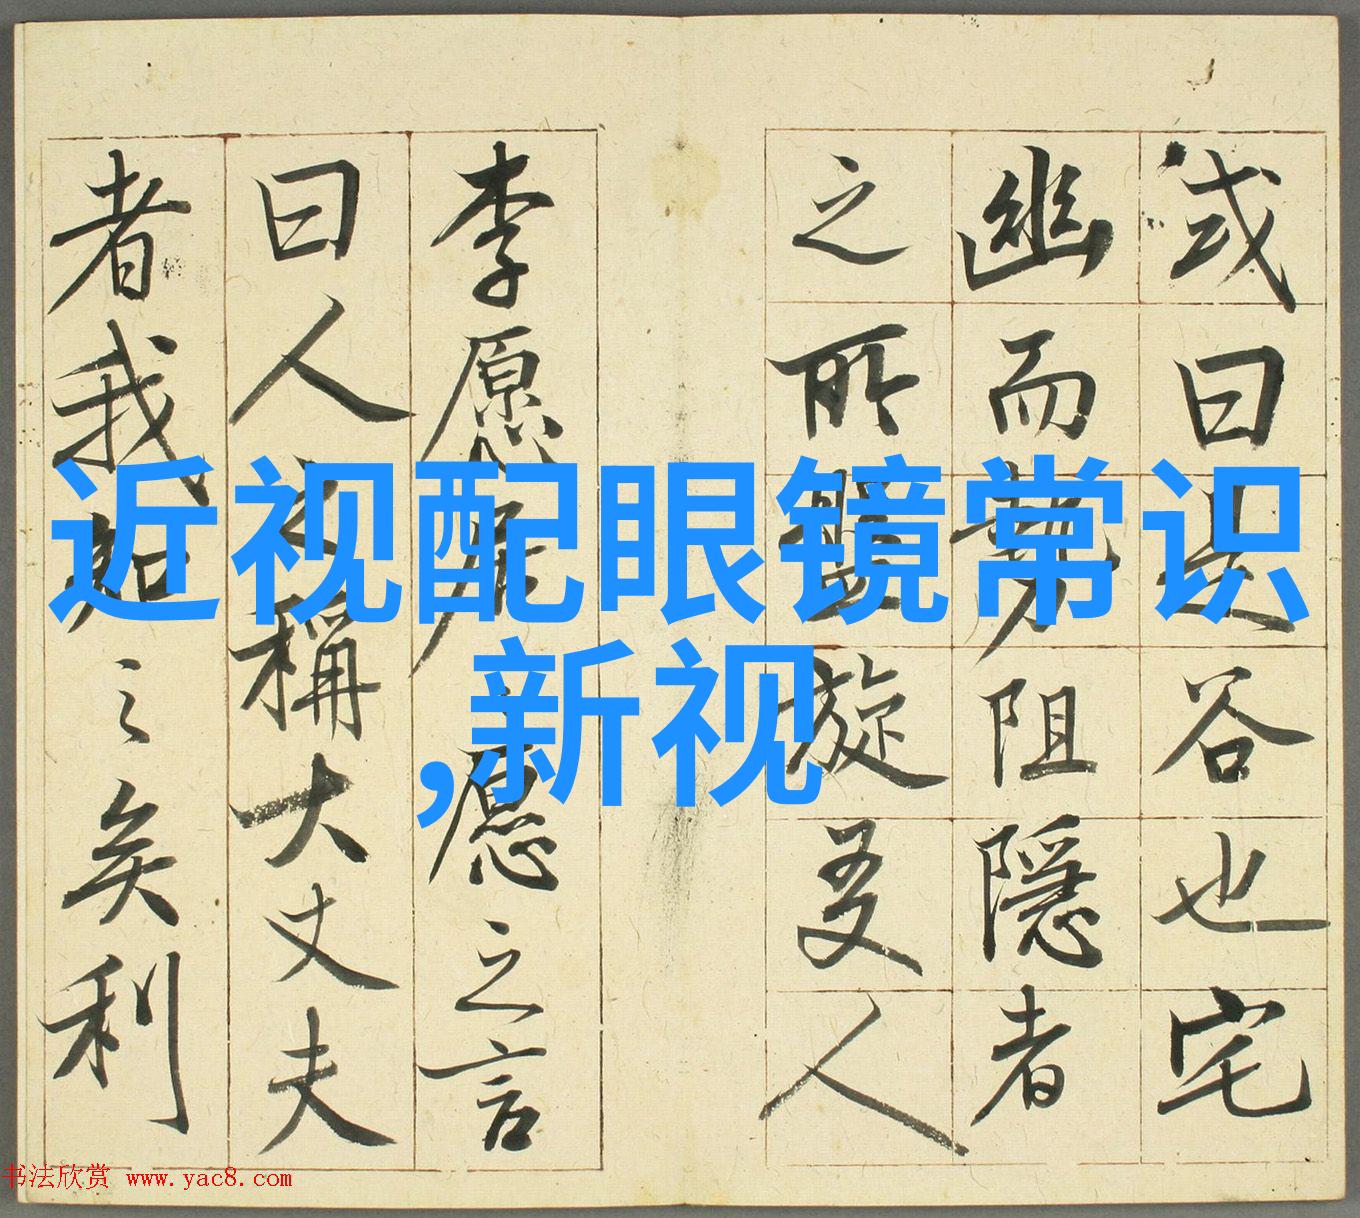 或曰是谷也宅
幽而勢阻隱者
之所盤旋友人
李愿居之愿之言
曰人之稱大丈夫
者我知之矣利
近视配眼镜常识
,新视
书法欣赏 www.yac8.com